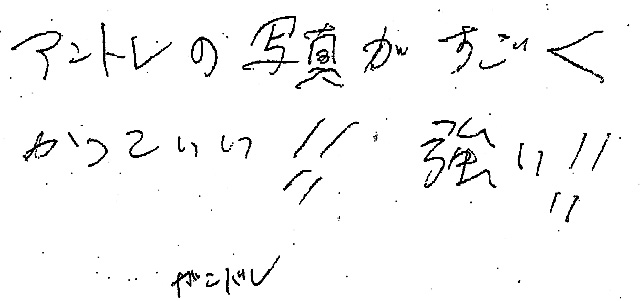 アントレの写真がすごく
かっこいい!! 強い!!